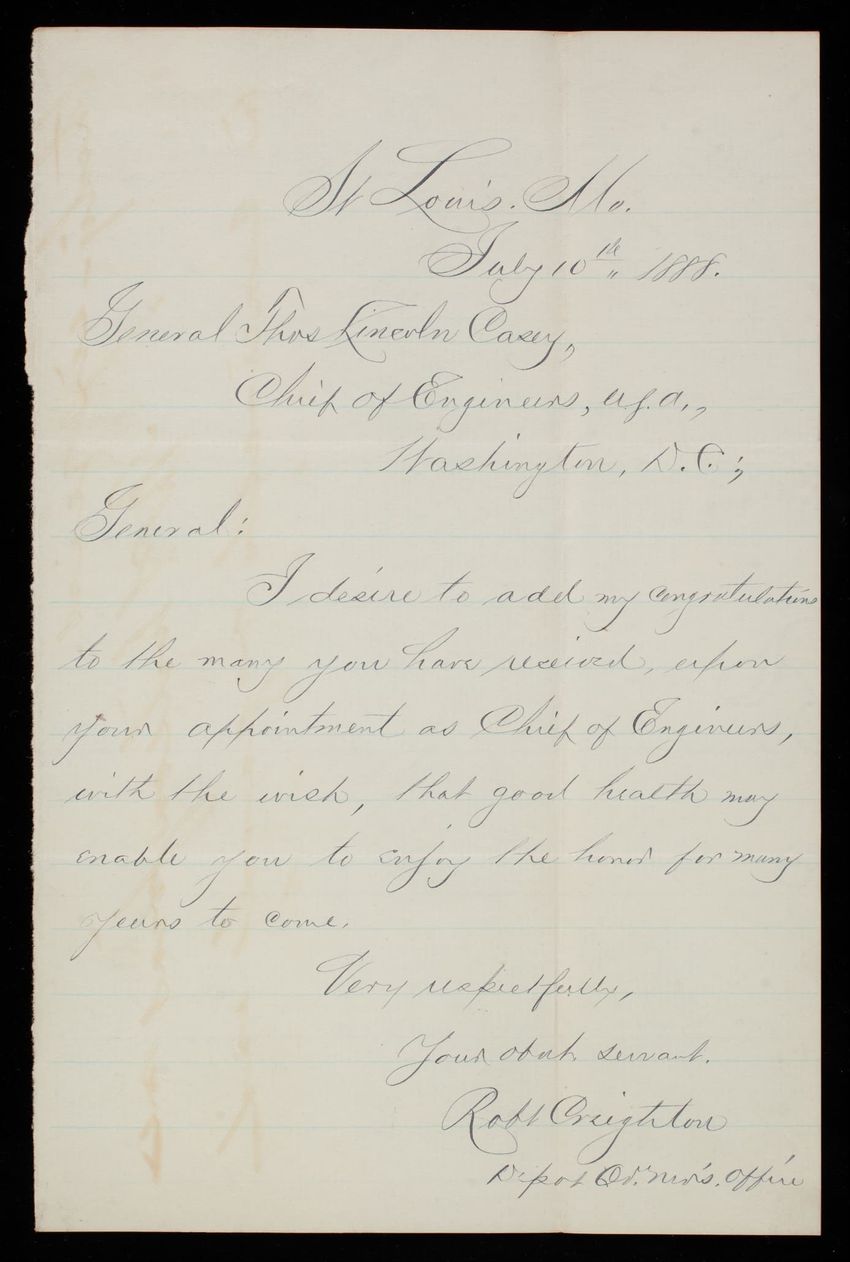 St Louis. Mo.
July 10th 1888.
General Thos Lincoln Casey,
Chief of Engineers, U.S.A.,
Washington, D.C.;
General:
I desire to add my congratulations
to the many you have received, upon
your appointment as Chief of Engineers,
with the wish, that good health may
enable you to enjoy the honor for many
years to come.
Very respectfully,
Your obdt servant.
Robt Creighton
Depot Qr. Mrs. Office